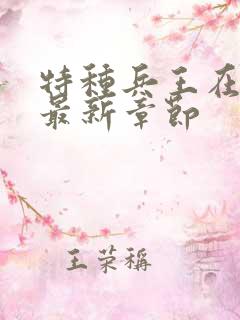 特種兵王在
最新章節
王荣稱